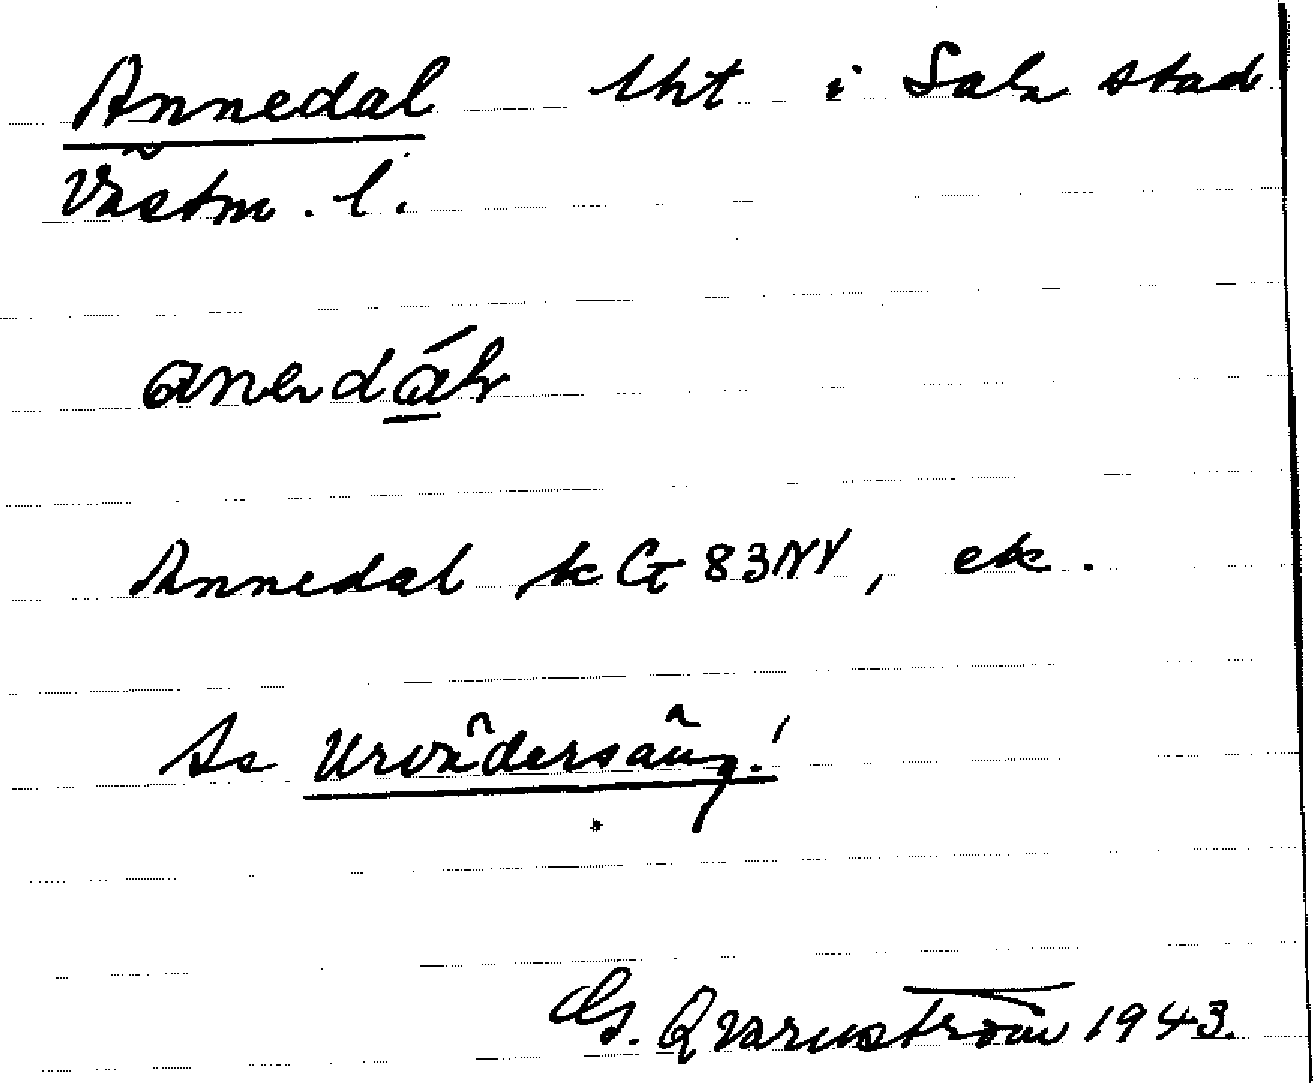 Annedal lht i Sala stad
Västm. l.
anedál
Annedal kG 83NV, ek.
Se Urvädersäng!
G. Qvarnström 1943.